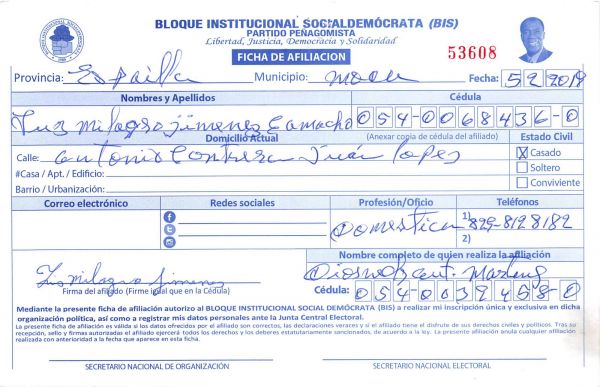 BLOQUE INSTITUCIONAL SOCIALDEMÓCRATA (BIS)
PARTIDO PEÑAGOMISTA
Libertad, Justicia, Democracia y Solidaridad
FICHA DE AFILIACION
53608
Provincia: Espailla Municipio: Moca Fecha: 5 2 2019
Nombres y Apellidos Cédula
Luz Milagro Jimenez Camacho 054-0068436-0
Domicilio Actual (Anexar copia de cédula del afiliado) Estado Civil
Calle: Antonio Contrera Juan Lopes X Casado
#Casa / Apt. / Edificio: Soltero
Barrio / Urbanización: Conviviente
Correo electrónico Redes sociales Profesión/Oficio Teléfonos
Domestica 1) 829-8128182
2)
Nombre completo de quien realiza la afiliación
Luz Milagro Jimenez
Firma del afiliado (Firme igual que en la Cédula) Cédula: 054-0039458-0
Mediante la presente ficha de afiliación autorizo al BLOQUE INSTITUCIONAL SOCIAL DEMÓCRATA (BIS) a realizar mi inscripción única y exclusiva en dicha
organización política, así como a registrar mis datos personales ante la Junta Central Electoral.
La presente ficha de afiliación es válida si los datos ofrecidos por el afiliado son correctos, las declaraciones veraces y si el afiliado tiene el disfrute de sus derechos civiles y políticos. Tras su
recepción, sello y firmas autorizadas el afiliado ejercerá todos los derechos y los deberes estatutariamente sancionados, de acuerdo a la ley. La presente afiliación anula cualquier afiliación
realizada con anterioridad a la fecha que aparece en esta ficha.
SECRETARIO NACIONAL DE ORGANIZACIÓN SECRETARIO NACIONAL ELECTORAL